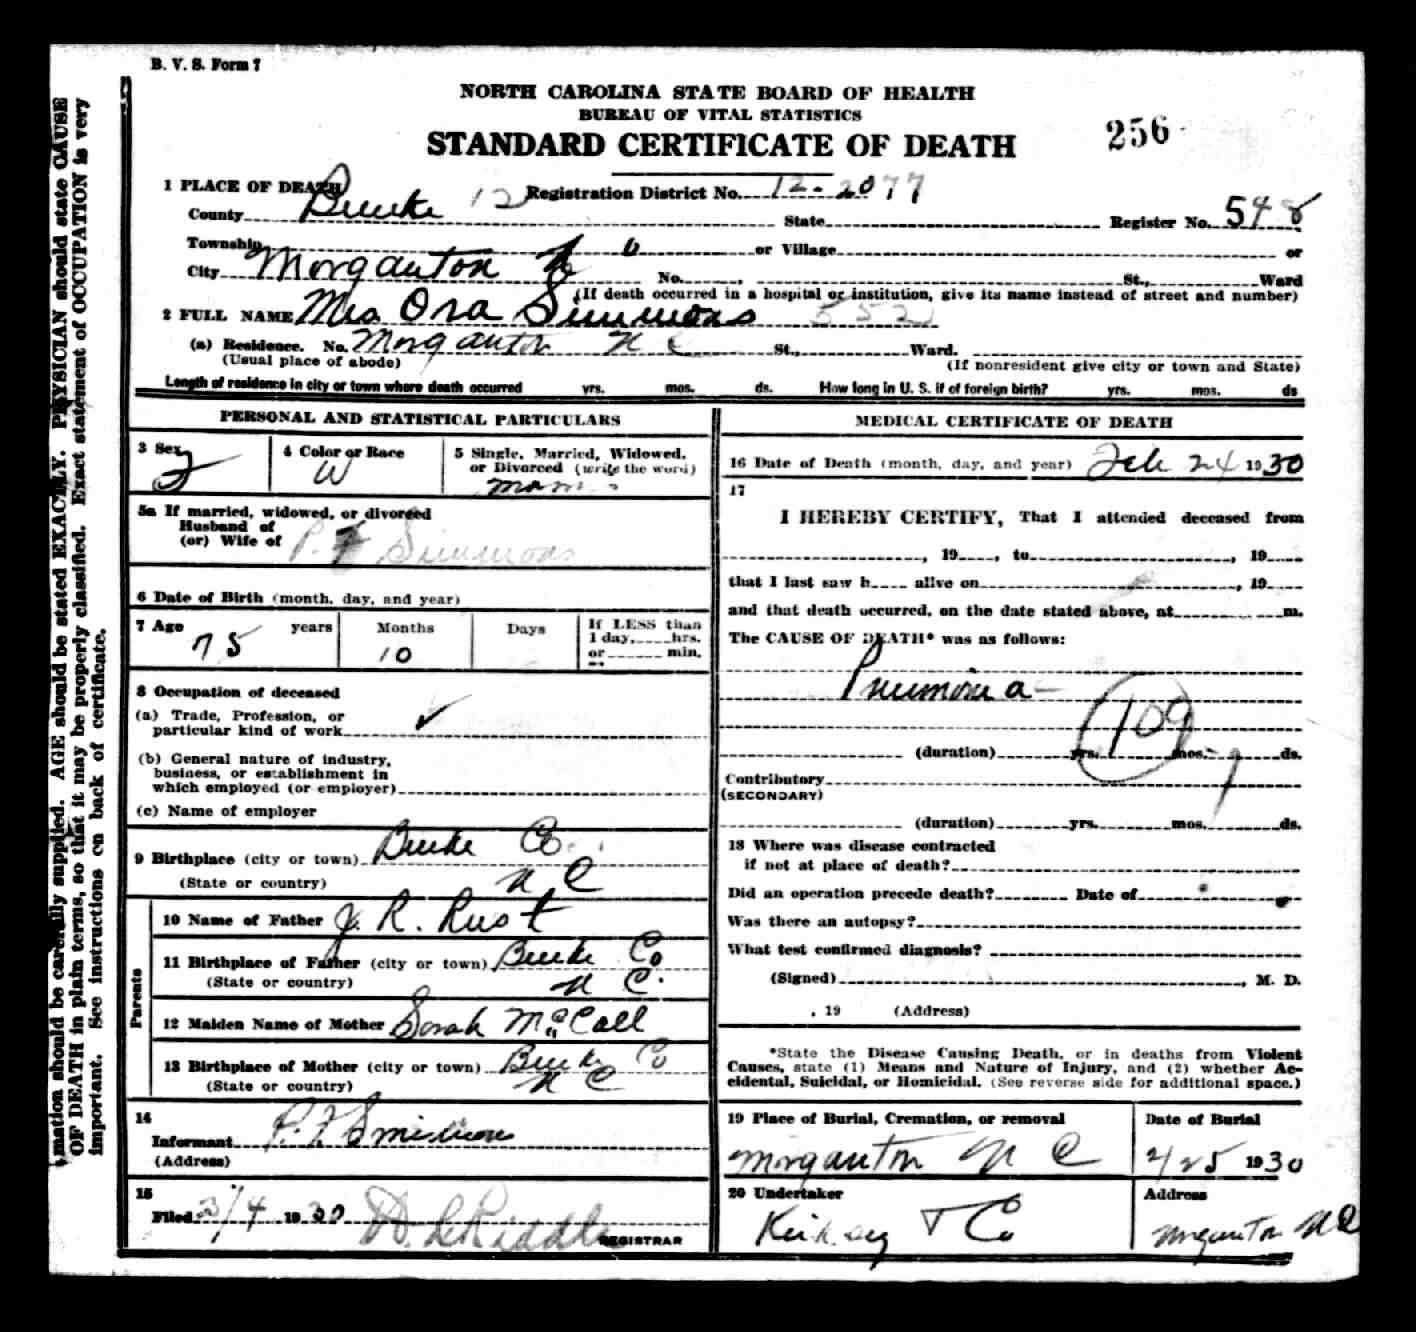 B. V. S. Form 7
NORTH CAROLINA STATE BOARD OF HEALTH
BUREAU OF VITAL STATISTICS
STANDARD CERTIFICATE OF DEATH
256
1 PLACE OF DEATH
Registration District No. 12-2077
County Burke 12 State Register No. 548
Township or Village or
City Morganton N C No. , St., Ward
(If death occurred in a hospital or institution, give its name instead of street and number)
2 FULL NAME Mrs Ora Simmons 552
(a) Residence. No. Morganton N C St., Ward.
(Usual place of abode) (If nonresident give city or town and State)
Length of residence in city or town where death occurred yrs. mos. ds. How long in U. S. if of foreign birth? yrs. mos. ds
PERSONAL AND STATISTICAL PARTICULARS
3 Sex F
4 Color or Race W
5 Single, Married, Widowed,
or Divorced (write the word)
5a If married, widowed, or divorced
Husband of
(or) Wife of P. F Simmons
6 Date of Birth (month, day, and year)
7 Age 75 years Months 10 Days
If LESS than
1 day, hrs.
or min.
8 Occupation of deceased
(a) Trade, Profession, or
particular kind of work ✓
(b) General nature of industry,
business, or establishment in
which employed (or employer)
(c) Name of employer
9 Birthplace (city or town) Burke Co.
(State or country) N C
Parents
10 Name of Father J. R. Rust
11 Birthplace of Father (city or town) Burke Co
(State or country) N C.
12 Maiden Name of Mother Sarah McCall
13 Birthplace of Mother (city or town) Burke Co
(State or country) N C
14
Informant P. F Simmons
(Address)
15
Filed 3/4 1930 REGISTRAR
MEDICAL CERTIFICATE OF DEATH
16 Date of Death (month, day, and year) Feb 24 1930
17
I HEREBY CERTIFY, That I attended deceased from
, 19 , to , 19
that I last saw h alive on , 19
and that death occurred, on the date stated above, at m.
The CAUSE OF DEATH* was as follows:
Pneumonia
109
(duration) yrs. mos. 9 ds.
Contributory
(SECONDARY)
(duration) yrs. mos. ds.
18 Where was disease contracted
if not at place of death?
Did an operation precede death? Date of
Was there an autopsy?
What test confirmed diagnosis?
(Signed) , M. D.
, 19 (Address)
*State the Disease Causing Death, or in deaths from Violent
Causes, state (1) Means and Nature of Injury, and (2) whether Ac-
cidental, Suicidal, or Homicidal. (See reverse side for additional space.)
19 Place of Burial, Cremation, or removal
Morganton N C
Date of Burial
2/25 1930
20 Undertaker
Kirksey & Co
Address
Morganton N C
mation should be carefully supplied. AGE should be stated EXACTLY. PHYSICIAN should state CAUSE
OF DEATH in plain terms, so that it may be properly classified. Exact statement of OCCUPATION is very
important. See instructions on back of certificate.